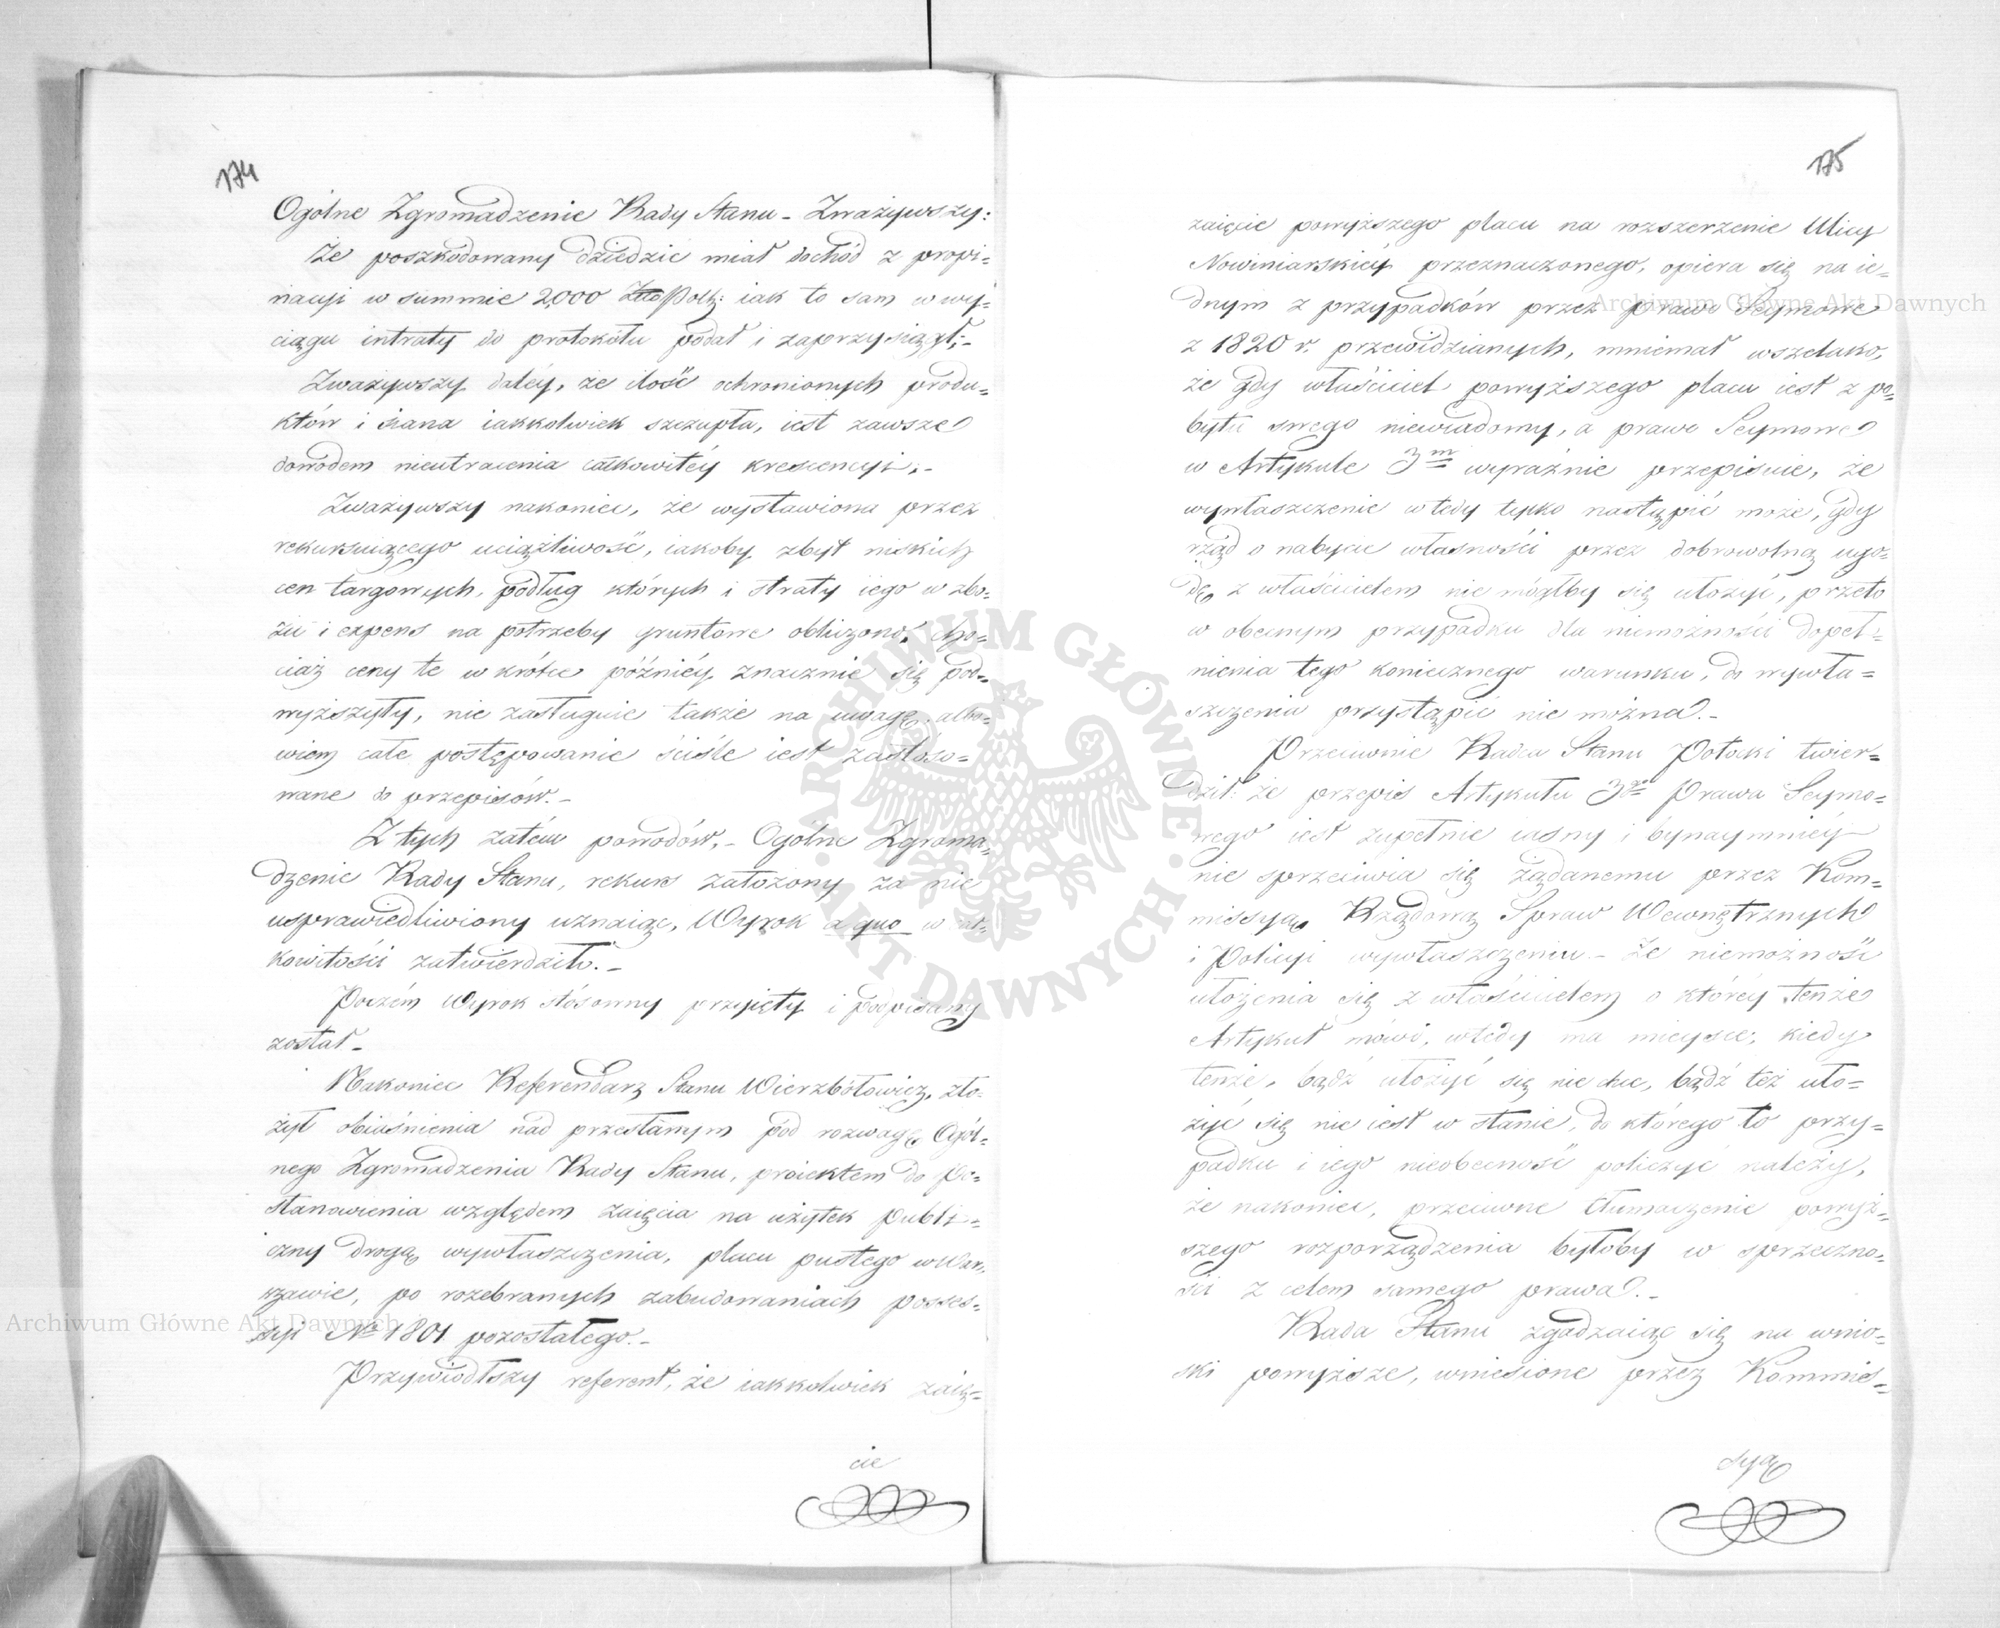 174
Ogólne Zgromadzenie Rady Stanu – Zważywszy:
Że poszkodowany dziedzic miał dochód z propi=
nacyi w summie 2000 Złł Polł: iak to sam w wy=
ciągu intraty do protokółu podał i zaprzysiągł;–
Zważywszy daléy, że ilość ochronionych produ=
któw i siana iakkolwiek szczupła, iest zawsze
dowodem nieutracenia całkowitéy krescencyi;–
Zważywszy nakoniec, że wystawiona przez
rekursuiącego uciążliwość, iakoby zbyt niskich
cen targowych, podług których i straty iego w zbo=
żu i expens na potrzeby gruntowe obliczono, cho=
ciaż ceny te w krótce późniéy znacznie się pod=
wyższyły, nie zasługuie także na uwagę, albo=
wiem całe postępowanie ściśle iest zastóso=
wane do przepisów.–
Z tych zatém powodów,– Ogólne Zgroma=
dzenie Rady Stanu, rekurs założony za nie
usprawiedliwiony uznaiąc, Wyrok a quo w cał=
kowitości zatwierdziło.–
Poczém Wyrok stósowny przyięty i podpisany
został–
Nakoniec Referendarz Stanu Wierzbołowicz, zło=
żył obiaśnienia nad przesłanym pod rozwagę Ogól=
nego Zgromadzenia Rady Stanu, proiektem do Po=
stanowienia względem zaięcia na użytek publi=
czny drogą wywłaszczenia, placu pustego w War=
szawie, po rozebranych zabudowaniach posses=
syi Nº 1801 pozostałego.–
Przywiódłszy referent, że iakkolwiek zaię=
cie
175
zaięcie powyższego placu na rozszerzenie Ulicy
Nowiniarskiéy przeznaczonego, opiera się na ie=
dnym z przypadków przez prawo Seymowe
z 1820 r. przewidzianych, mniemał wszelako,
że gdy właściciel powyższego placu iest z po=
bytu swego niewiadomy, a prawo Seymowe
w Artykule 3m wyraźnie przepisuie, że
wywłaszczenie wtedy tylko nastąpić może, gdy
rząd o nabycie własności przez dobrowolną ugo=
dę z właścicielem nie mógłby się ułożyć, przeto
w obecnym przypadku dla niemożności dopeł=
nienia tego koniecznego warunku, do wywła=
szczenia przystąpić nie można.–
Przeciwnie Radca Stanu Potocki twier=
dził: że przepis Artykułu 3go Prawa Seymo=
wego iest zupełnie iasny i bynaymniéy
nie sprzeciwia się żądanemu przez Kom=
missyą Rządową Spraw Wewnętrznych
i Policyi wywłaszczeniu – Że niemożność
ułożenia się z właścicielem o któréy tenże
Artykuł mówi, wtedy ma mieysce, kiedy
tenże, bądź ułożyć się nie chce, bądź też uło=
żyć się nie iest w stanie, do którego to przy=
padku i iego nieobecność policzyć należy,
że nakoniec, przeciwne tłumaczenie powyż=
szego rozporządzenia byłoby w sprzeczno=
ści z celem samego prawa.–
Rada Stanu zgadzaiąc się na wnio=
ski powyższe, wniesione przez Kommis=
syą
ARCHIWUM GŁÓWNE AKT DAWNYCH
Archiwum Główne Akt Dawnych
Archiwum Główne Akt Dawnych